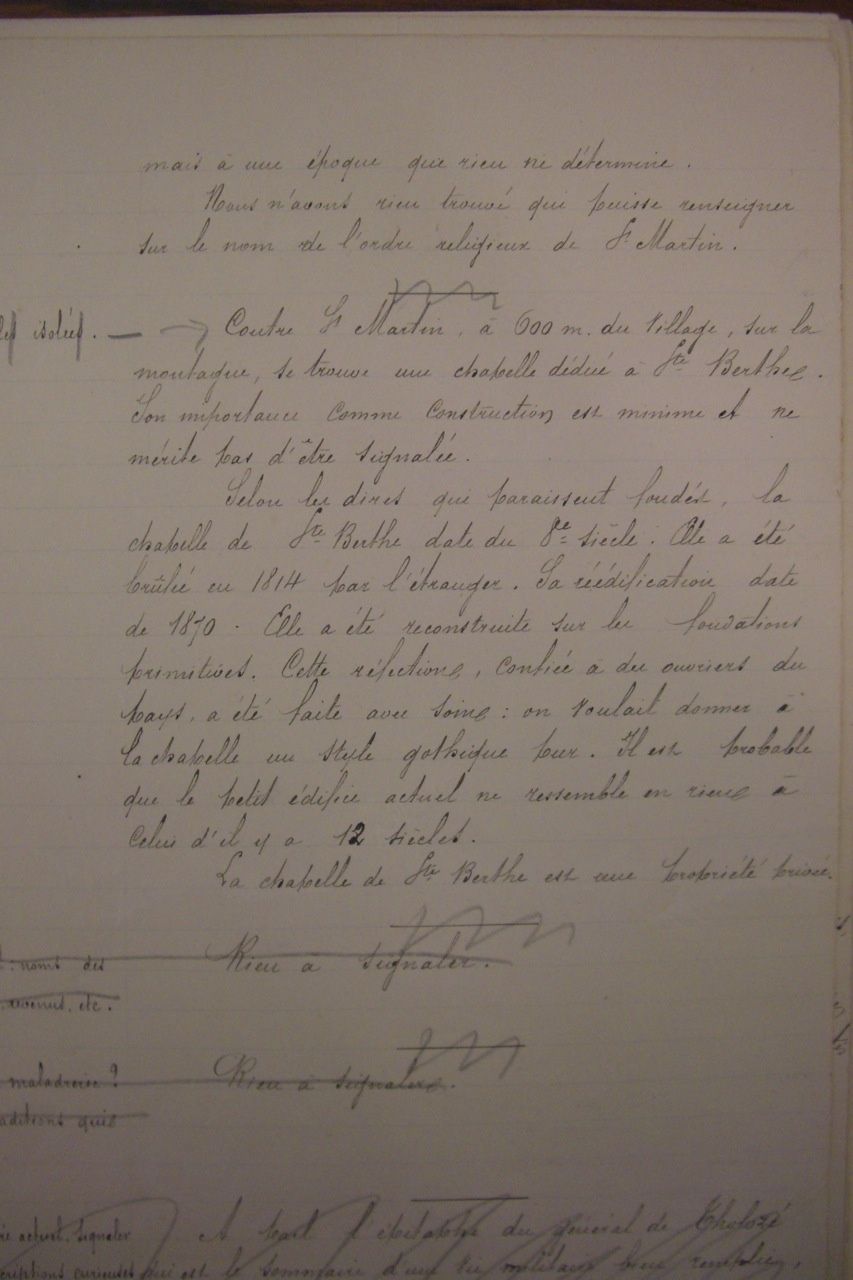 mais à une époque que rien ne détermine.
Nous n'avons rien trouvé qui puisse renseigner
sur le nom de l'ordre religieux de St Martin.
isolées. — Contre St Martin, à 600 m. du village, sur la
montagne, se trouve une chapelle dédiée à Ste Berthe.
Son importance comme construction est minime et ne
mérite pas d'être signalée.
Selon les dires qui paraissent fondés, la
chapelle de Ste Berthe date du 8e siècle. Elle a été
brûlée en 1814 par l'étranger. Sa réédification date
de 1870. Elle a été reconstruite sur les fondations
primitives. Cette réfection, confiée à des ouvriers du
pays, a été faite avec soin : on voulait donner à
la chapelle un style gothique pur. Il est probable
que le petit édifice actuel ne ressemble en rien à
celui d'il y a 12 siècles.
La chapelle de Ste Berthe est une propriété privée.
noms des Rien à signaler.
etc.
maladrerie ? Rien à signaler.
qui
actuel. Signaler A part l'épitaphe du général de Tholozé
curieuses qui est le sommaire d'une vie militaire bien remplie,